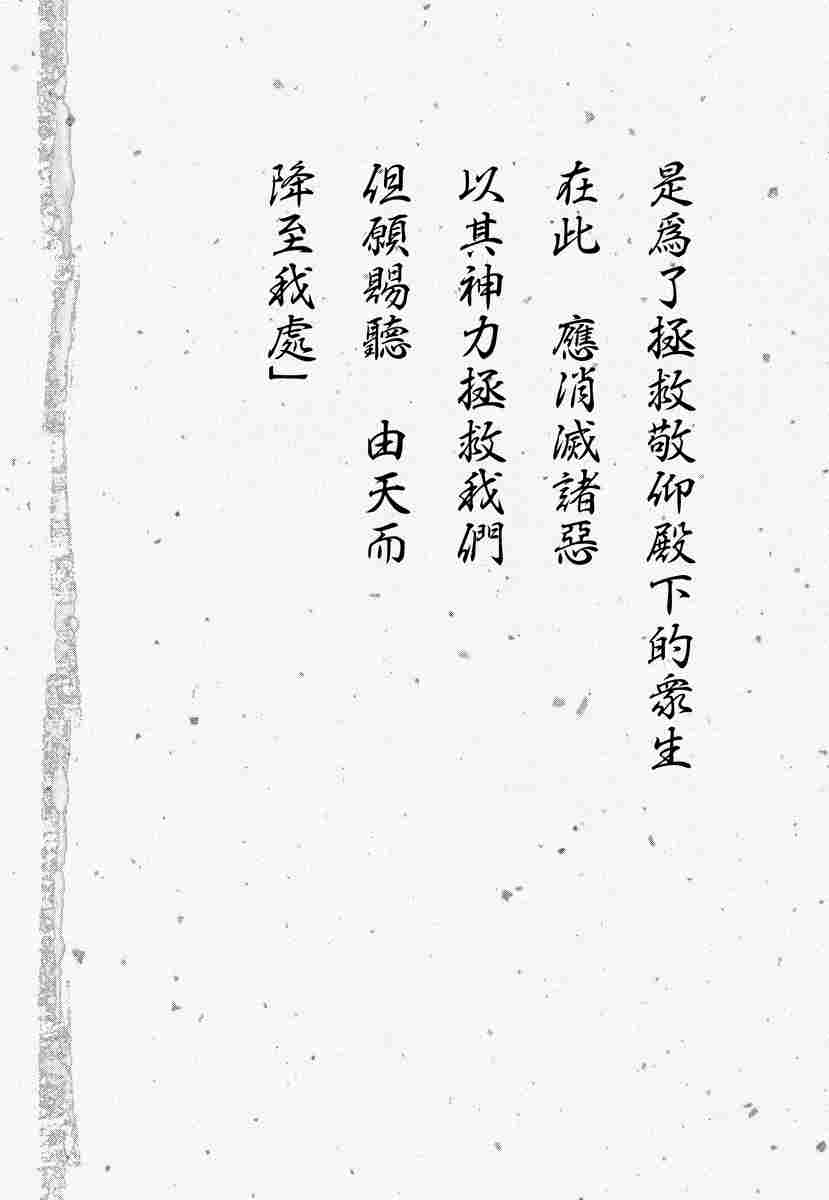 是爲了拯救敬仰殿下的衆生
在此　應消滅諸惡
以其神力拯救我們
但願賜聽　由天而
降至我處」